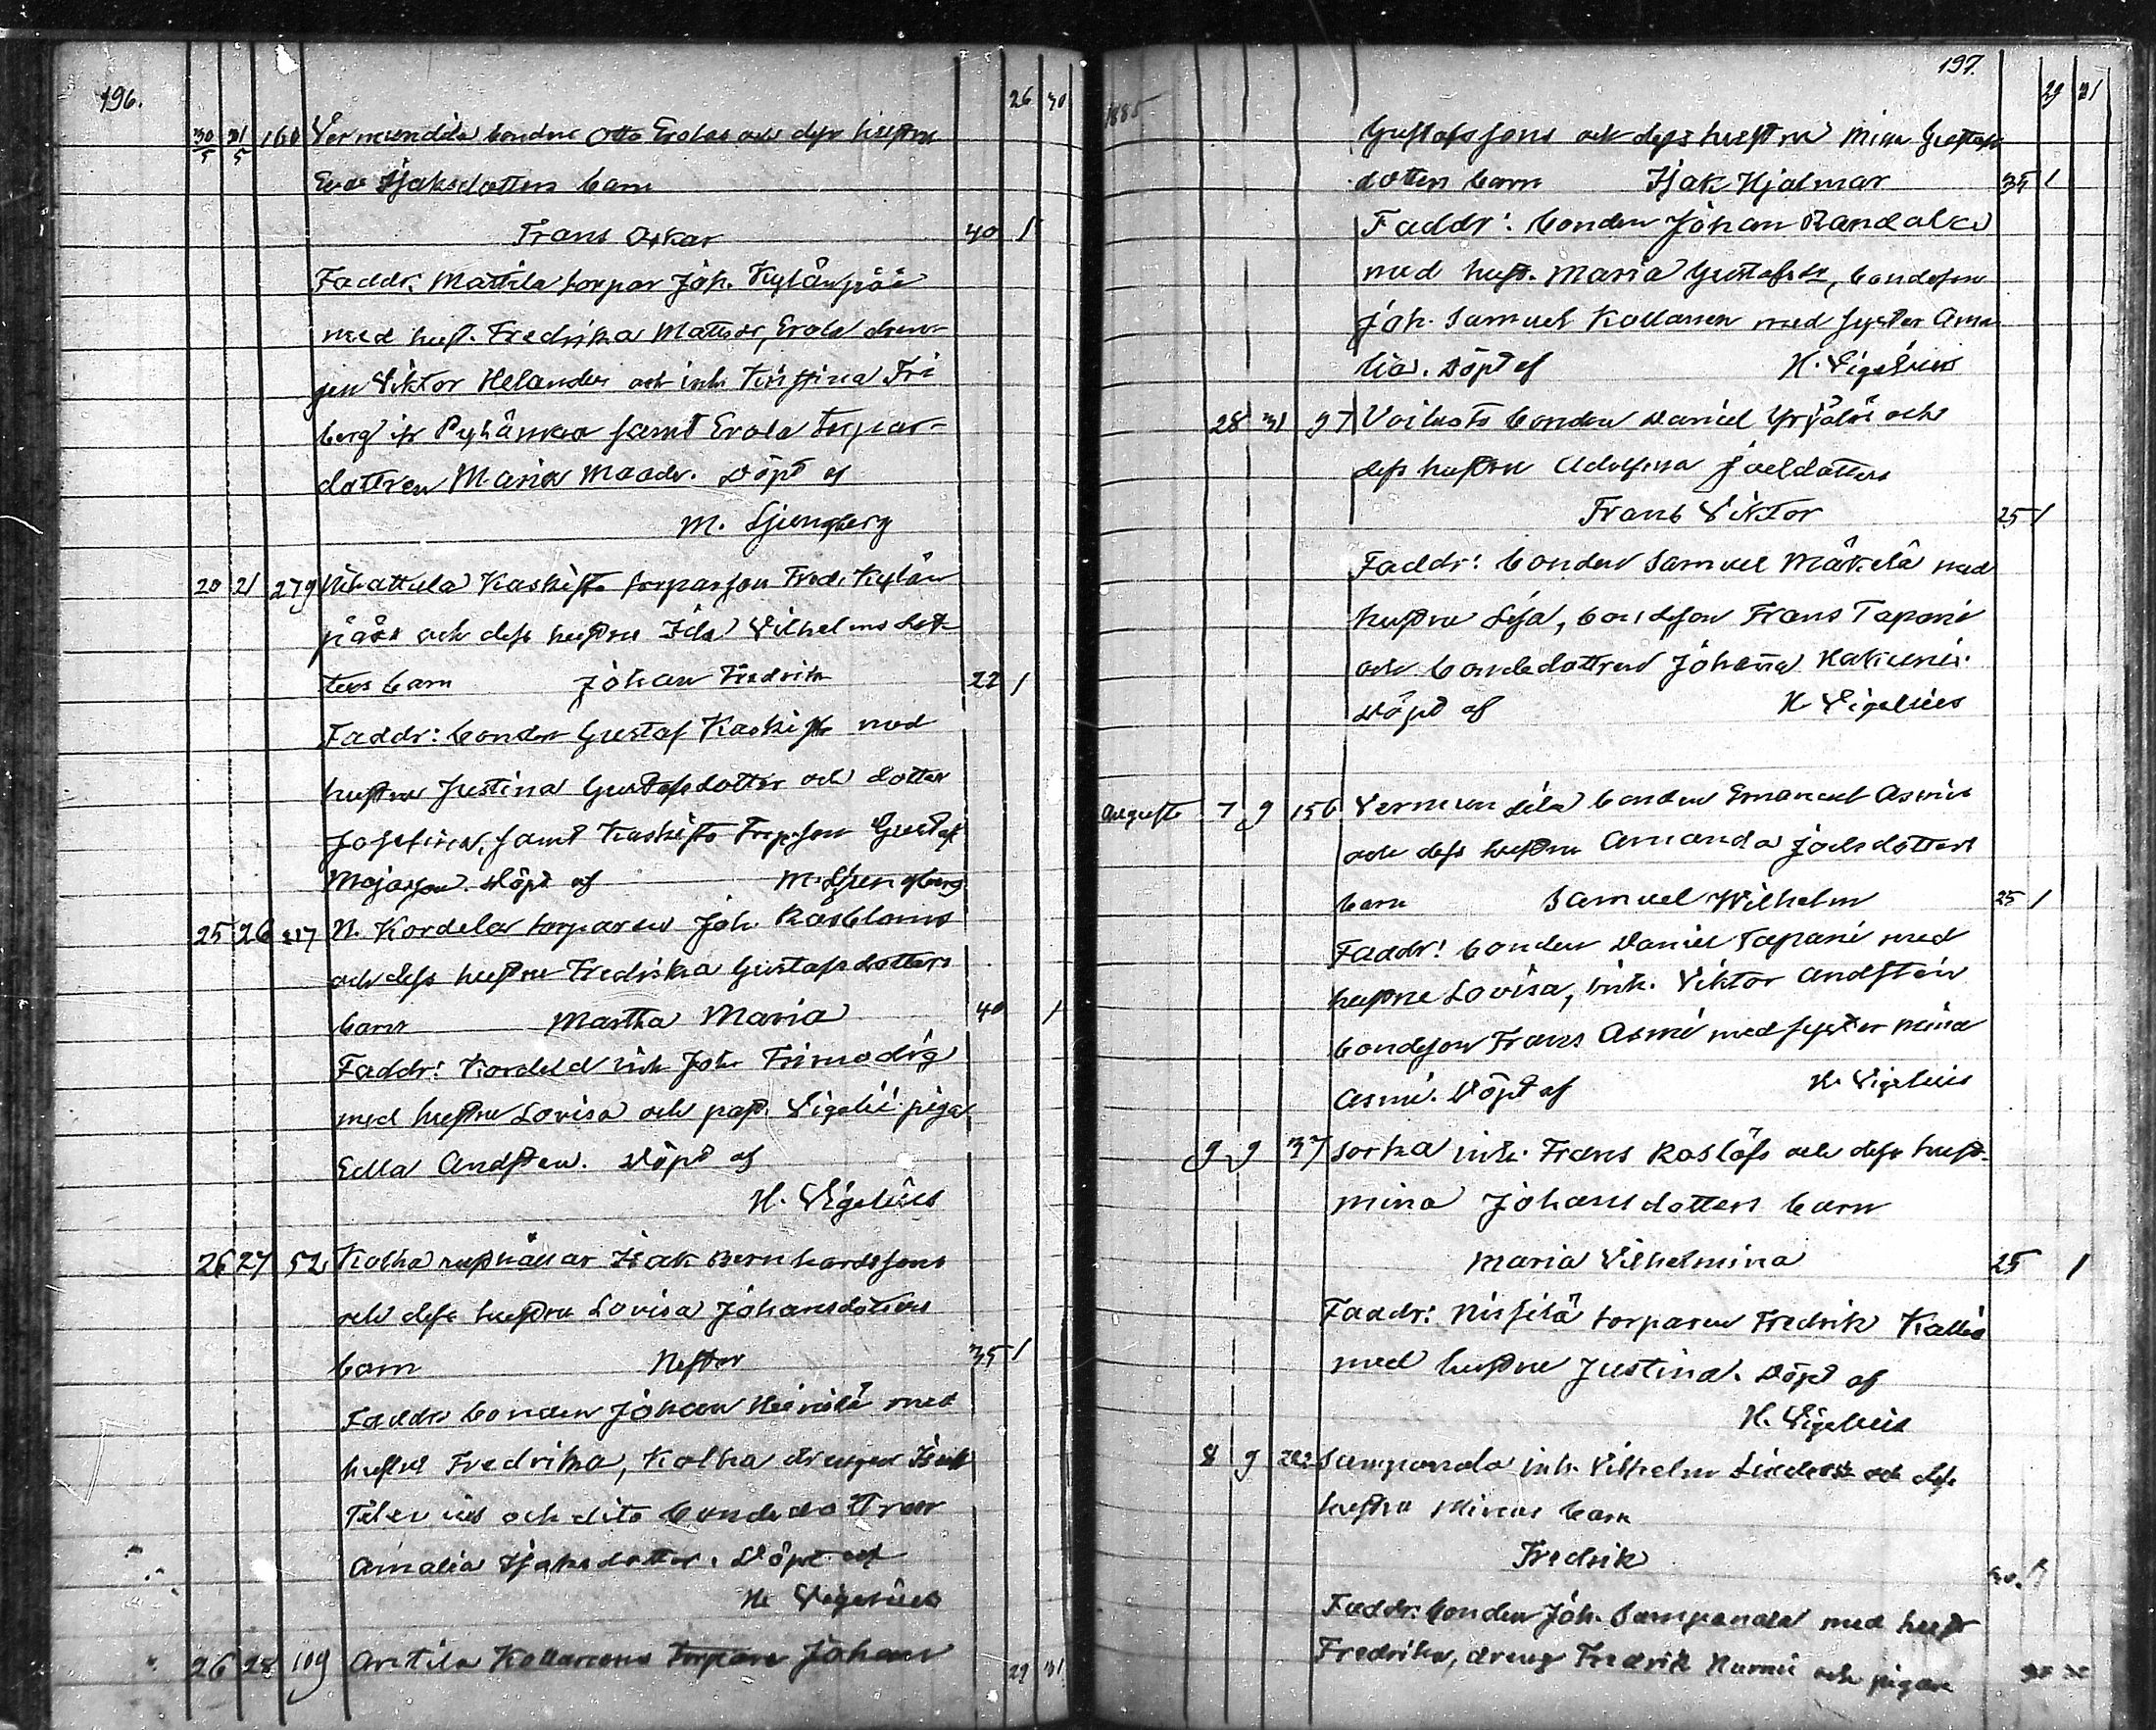 196.
26 30
30/5 31/5 160 Vermundila bonden Otto Erolas och dess hustru
Eva Isaksdotters barn
Frans Oskar 40 1
Faddr: Mattila torpar Joh. Kylänpää
med hust. Fredrika Mattsdr, Erola dren-
gen Viktor Helander och inh. Kristina Fri
berg ifr Pyhämaa samt Erola torpar-
dottren Maria Maadr. Döpt af
M. Ljungberg
20 21 279 Kaskisto torparson Fred. Kylän
pääs och dess hustru Ida Vilhelmsdot-
ters barn Johan Fredrik 22 1
Faddr: bonden Gustaf Kaskisto med
hustru Justina Gustafsdotter och dotter
Josefina, samt Kaskisto Torp.son Gustaf
Majasson. Döpt af M. Ljungberg
25 26 217 N. Kordela torparen Joh. Rosbloms
och dess hustru Fredrika Gustafsdotters
barn Martha Maria 40 1
Faddr: Kordela inh Joh. Frimodig
med hustru Lovisa och past. Vigelii piga
Edla Andsten. Döpt af
H. Vigelius
26 27 52 Kolha Isak Bernhardssons
och dess hustru Lovisa Johansdotters
barn Nestor 35 1
Faddr: bonden Johan Heinilä med
hustru Fredrika, Kolha drengen Isak
och dito bondedottren
Amalia Isaksdotter. Döpt af
H. Vigelius
26 28 109 Anttila Kollarens torpare Johan
29 31
197.
29 31
1885
Gustafssons och dess hustru Mina Gustafs
dotters barn Isak Hjalmar 35 1
Faddr: bonden Johan Randala
med hust. Maria Gustafsdr, bondeson
Joh. Samuel Kollanen med syster Ama
lia. Döpt af H. Vigelius
28 31 97 Voiluoto bonden Daniel Yrjälä och
dess hustru Adolfina Joelsdotters
Frans Viktor 25 1
Faddr: bonden Samuel Mäkelä med
hustru Lisa, bondeson Frans Tapani
och bondedottren Johanna
Döpt af H Vigelius
Augusti 7 9 156 Vermundila bonden Emanuel Asmis
och dess hustru Amanda Joelsdotters
barn Samuel Wilhelm 25 1
Faddr: bonden Daniel Tapani med
hustru Lovisa, inh. Viktor Andsten
bondeson Frans Asmi med syster Mina
Asmi. Döpt af H. Vigelius
9 9 37 Sorka inh. Frans Roslöfs och dess hust-
Mina Johansdotters barn
Maria Vilhelmina 25 1
Faddr: Nissilä torparen Fredrik Kallio
med hustru Justina. Döpt af
H. Vigelius
8 9 282 Sampanala inh. Vilhelm och dess
hustru Minas barn
Fredrik
Faddr: bonden Joh. Sampanala med hustr
Fredrika, dreng Fredrik Nurmi och pigan